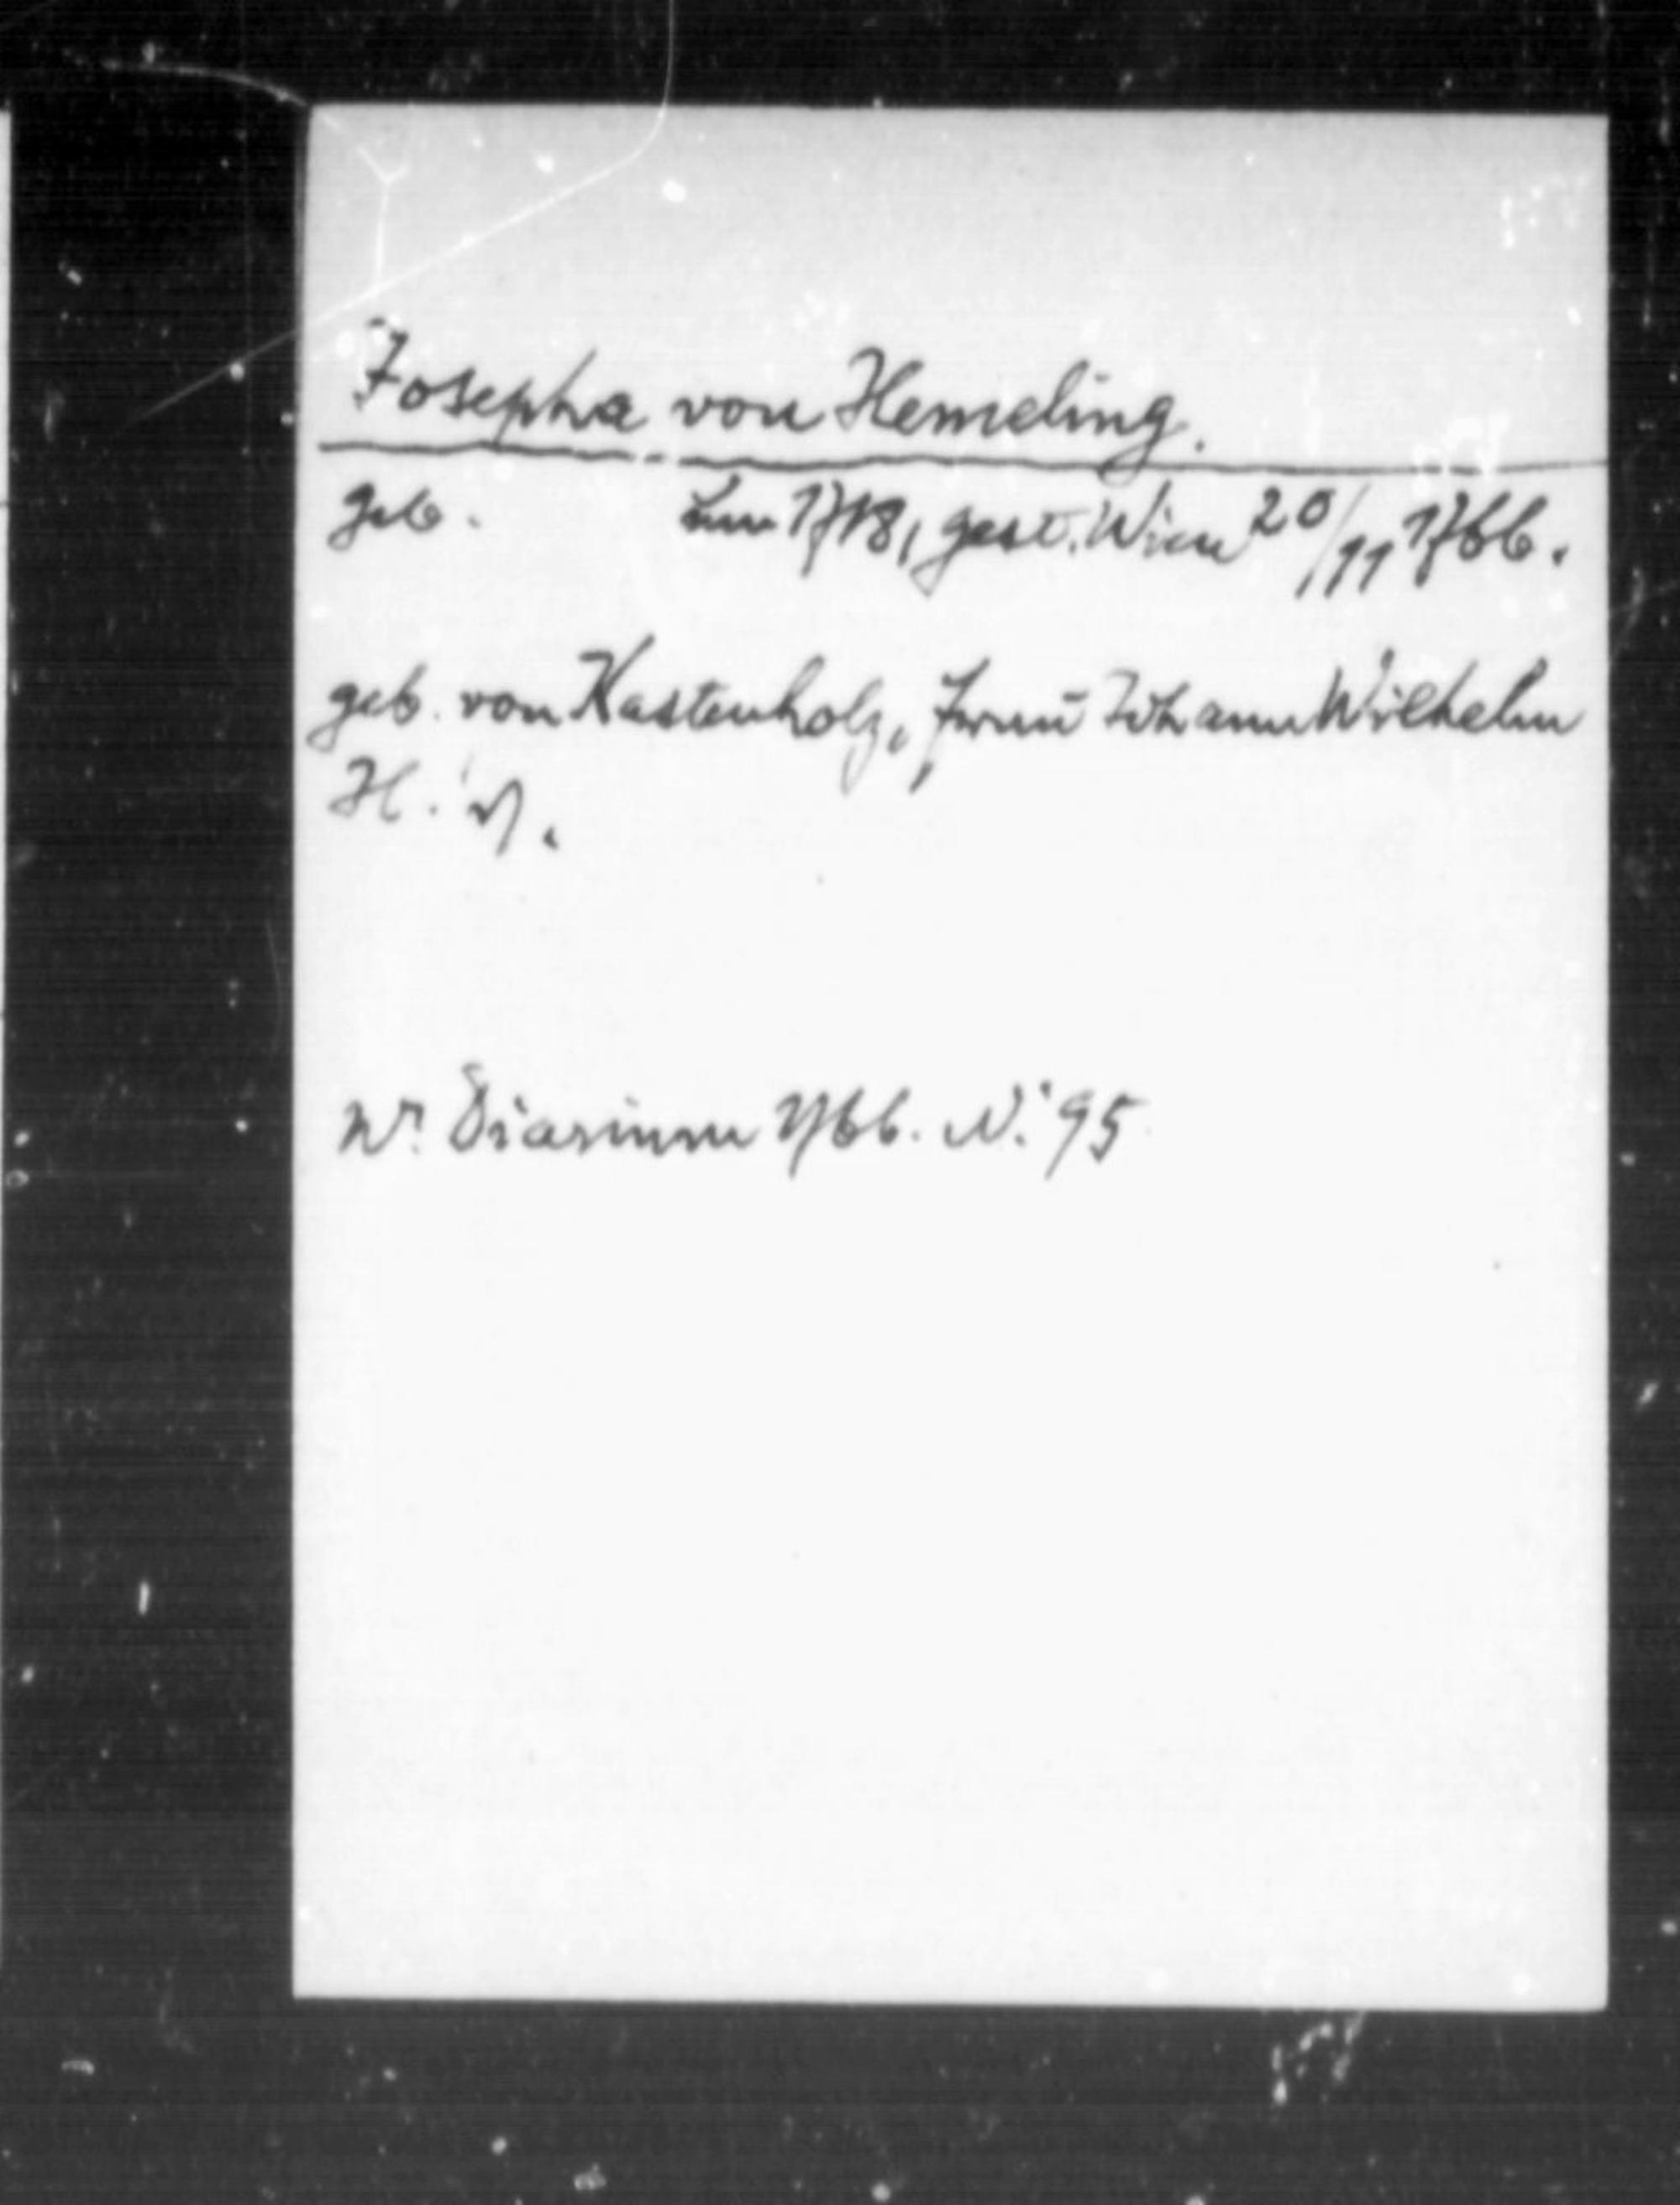 Josepha von Hemeling.
geb. um 1718, gest. Wien 20/11 1766.
geb. von Kastenholz, Frau Johann Wilhelm
H.'s.
Wr. Diarium 1766. N: 95